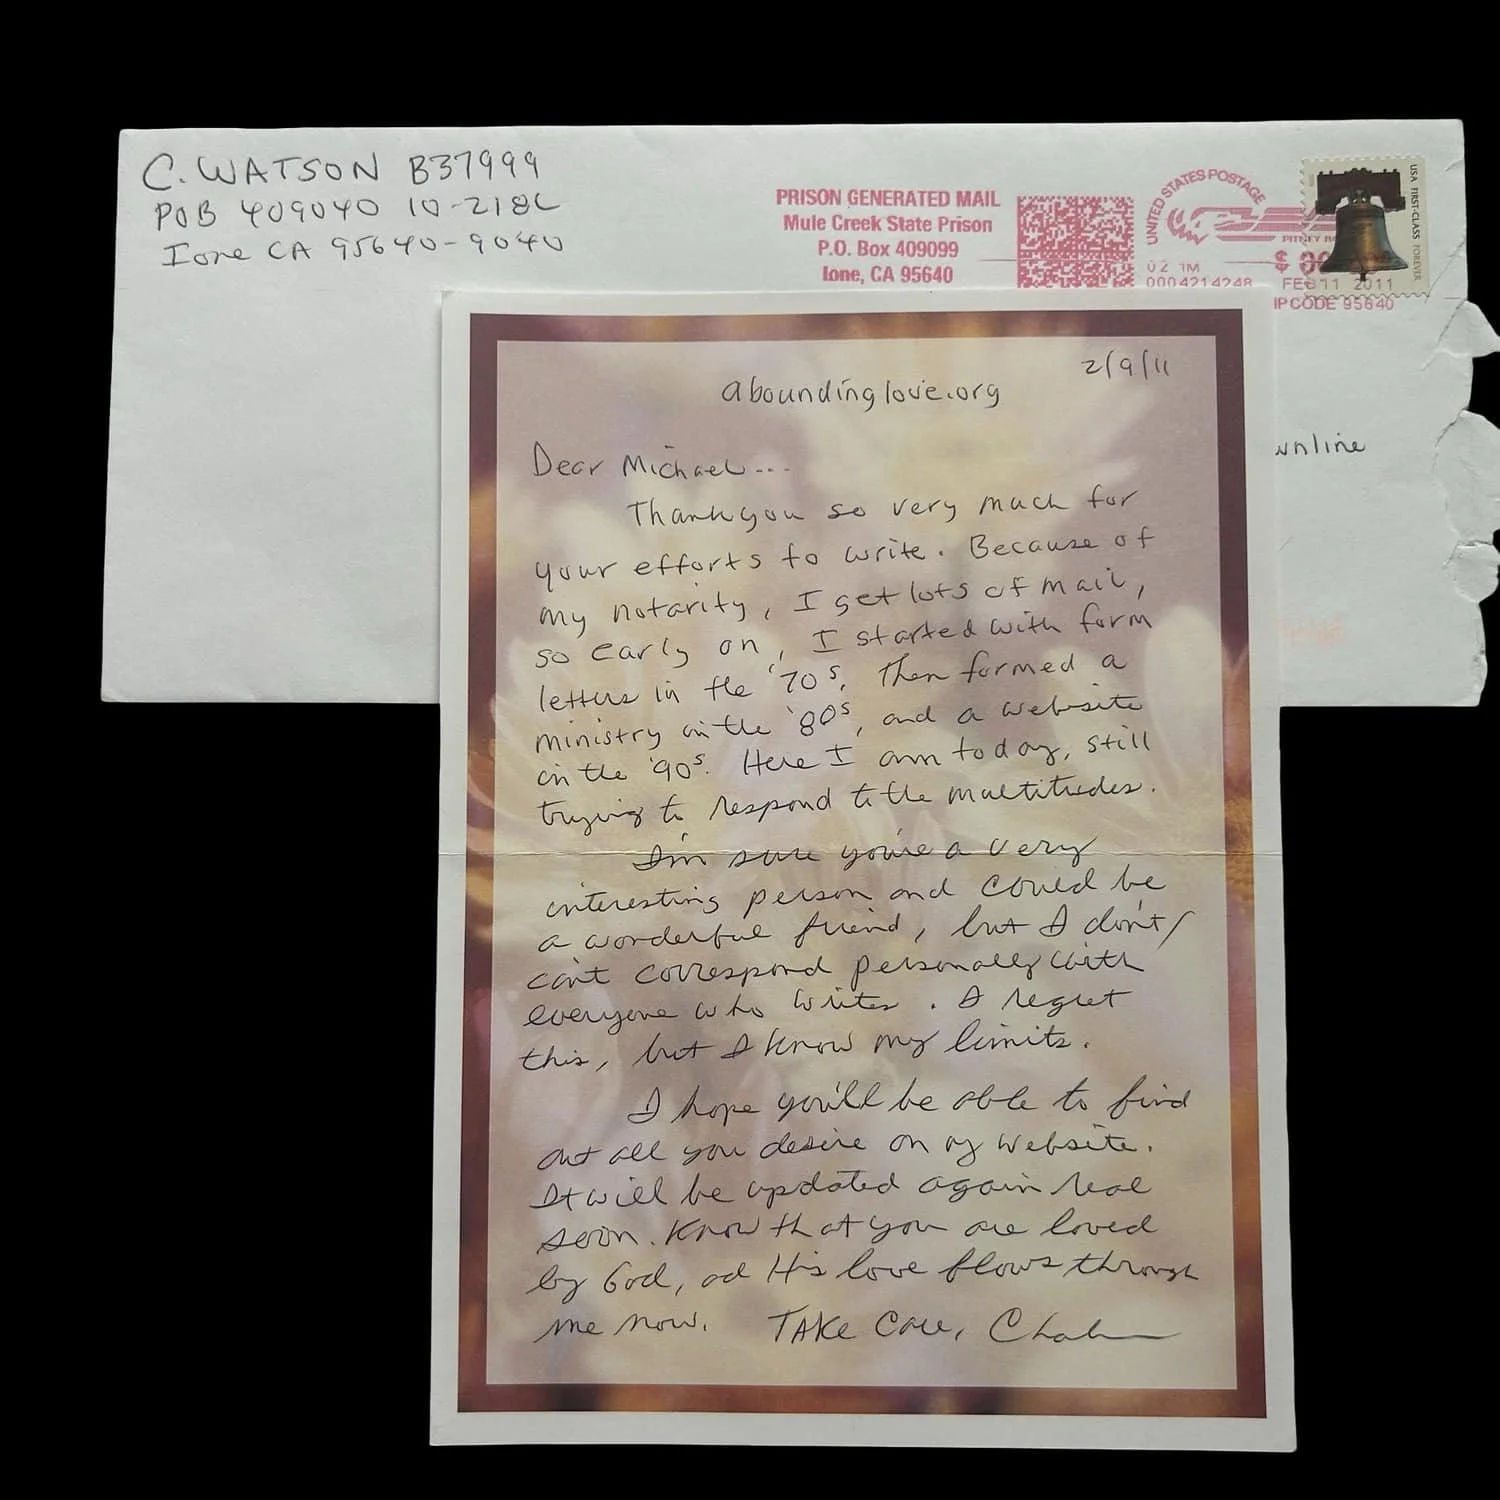 C. WATSON B37999
POB 409040 10-218L
Ione CA 95640-9040
PRISON GENERATED MAIL
Mule Creek State Prison
P.O. Box 409099
Ione, CA 95640
UNITED STATES POSTAGE
PITNEY
02 1M
0004214248
FEB 11 2011
ZIPCODE 95640
USA FIRST-CLASS FOREVER
wnline
2/9/11
aboundinglove.org
Dear Michael...
Thank you so very much for
your efforts to write. Because of
my notarity, I get lots of mail,
so early on, I started with form
letters in the '70s. Then formed a
ministry in the '80s, and a website
in the '90s. Here I am today, still
trying to respond to the multitudes.
I'm sure you're a very
interesting person and could be
a wonderful friend, but I don't/
can't correspond personally with
everyone who writes. I regret
this, but I know my limits.
I hope you'll be able to find
out all you desire on my website.
It will be updated again real
soon. Know that you are loved
by God, ad His love flows through
me now. TAKE Care,